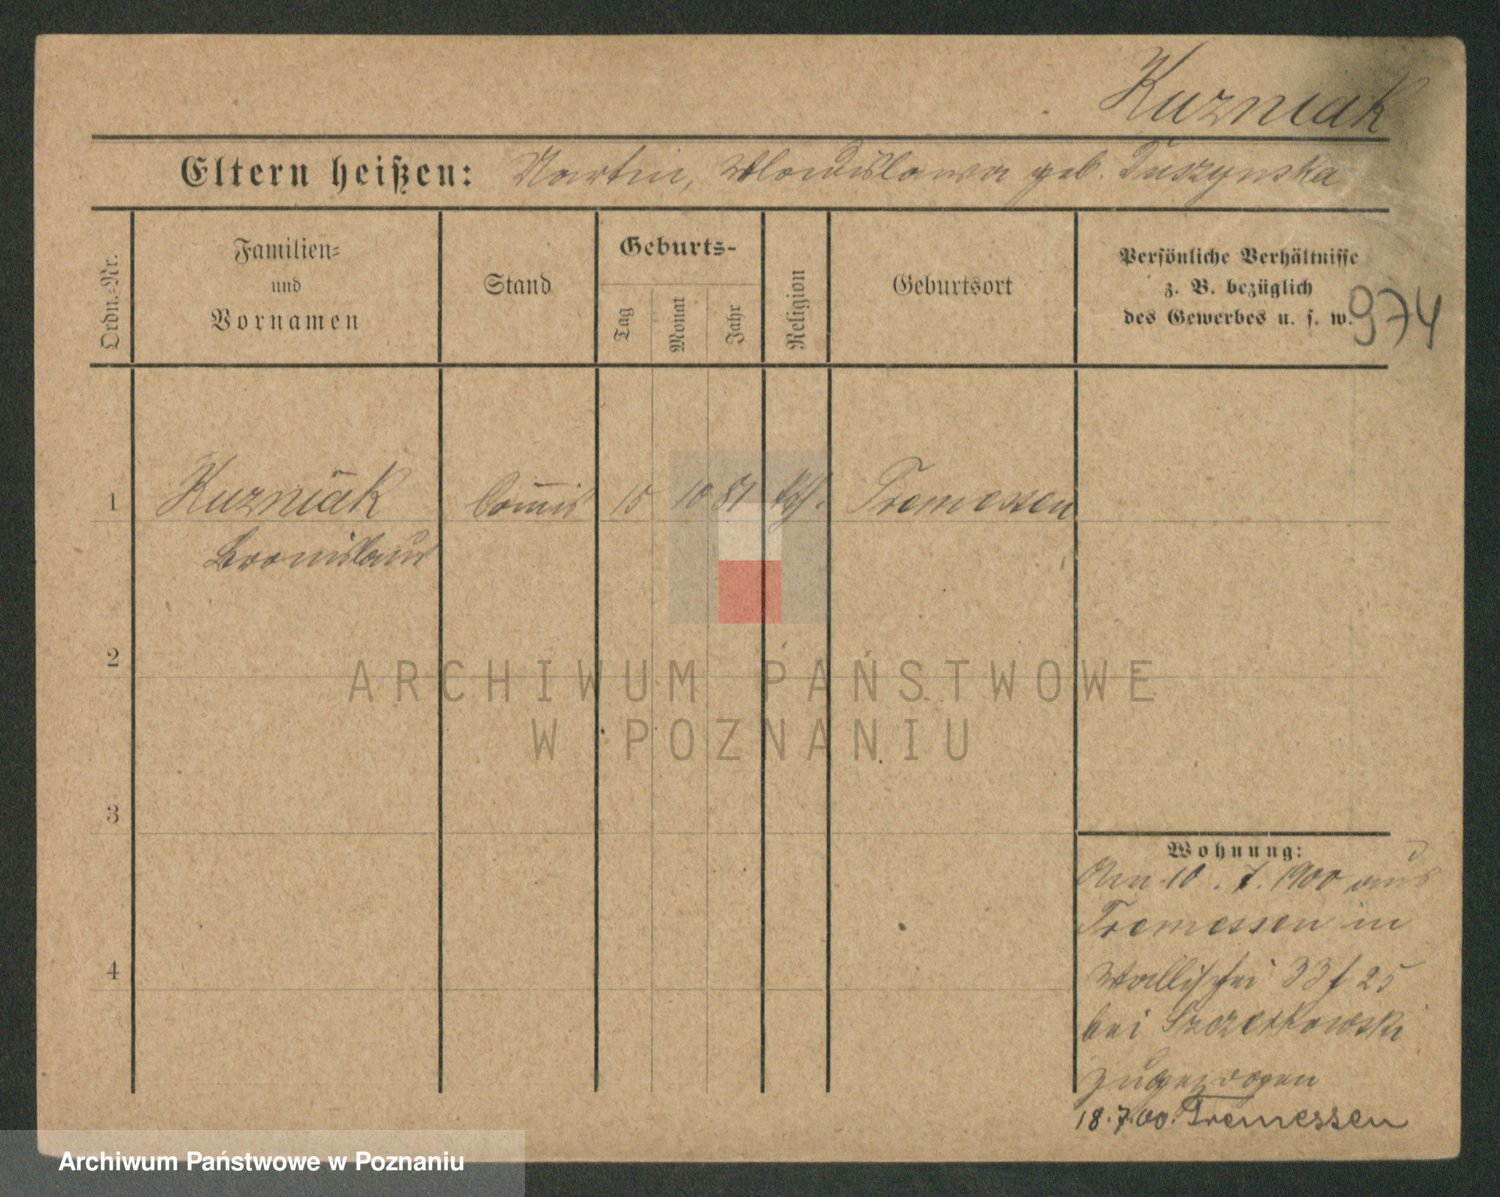 Kuzniak
Eltern heißen: Martin, Wladislawa geb. Tuszynska
Ordn.-Nr.
Familien-
und
Vornamen
Stand
Geburts-
Tag
Monat
Jahr
Religion
Geburtsort
Persönliche Verhältnisse
z. B. bezüglich
des Gewerbes u. s. w.
974
1 Kuzniak Commis 15 10 81 kth. Tremessen
Bronislaus
2
3
4
Wohnung:
Am 10. 7. 1900 aus
Tremessen in
Wallischei 33 f 25
bei Szczerkowski
zugezogen
18.7.00. Tremessen
ARCHIWUM PAŃSTWOWE
W POZNANIU
Archiwum Państwowe w Poznaniu